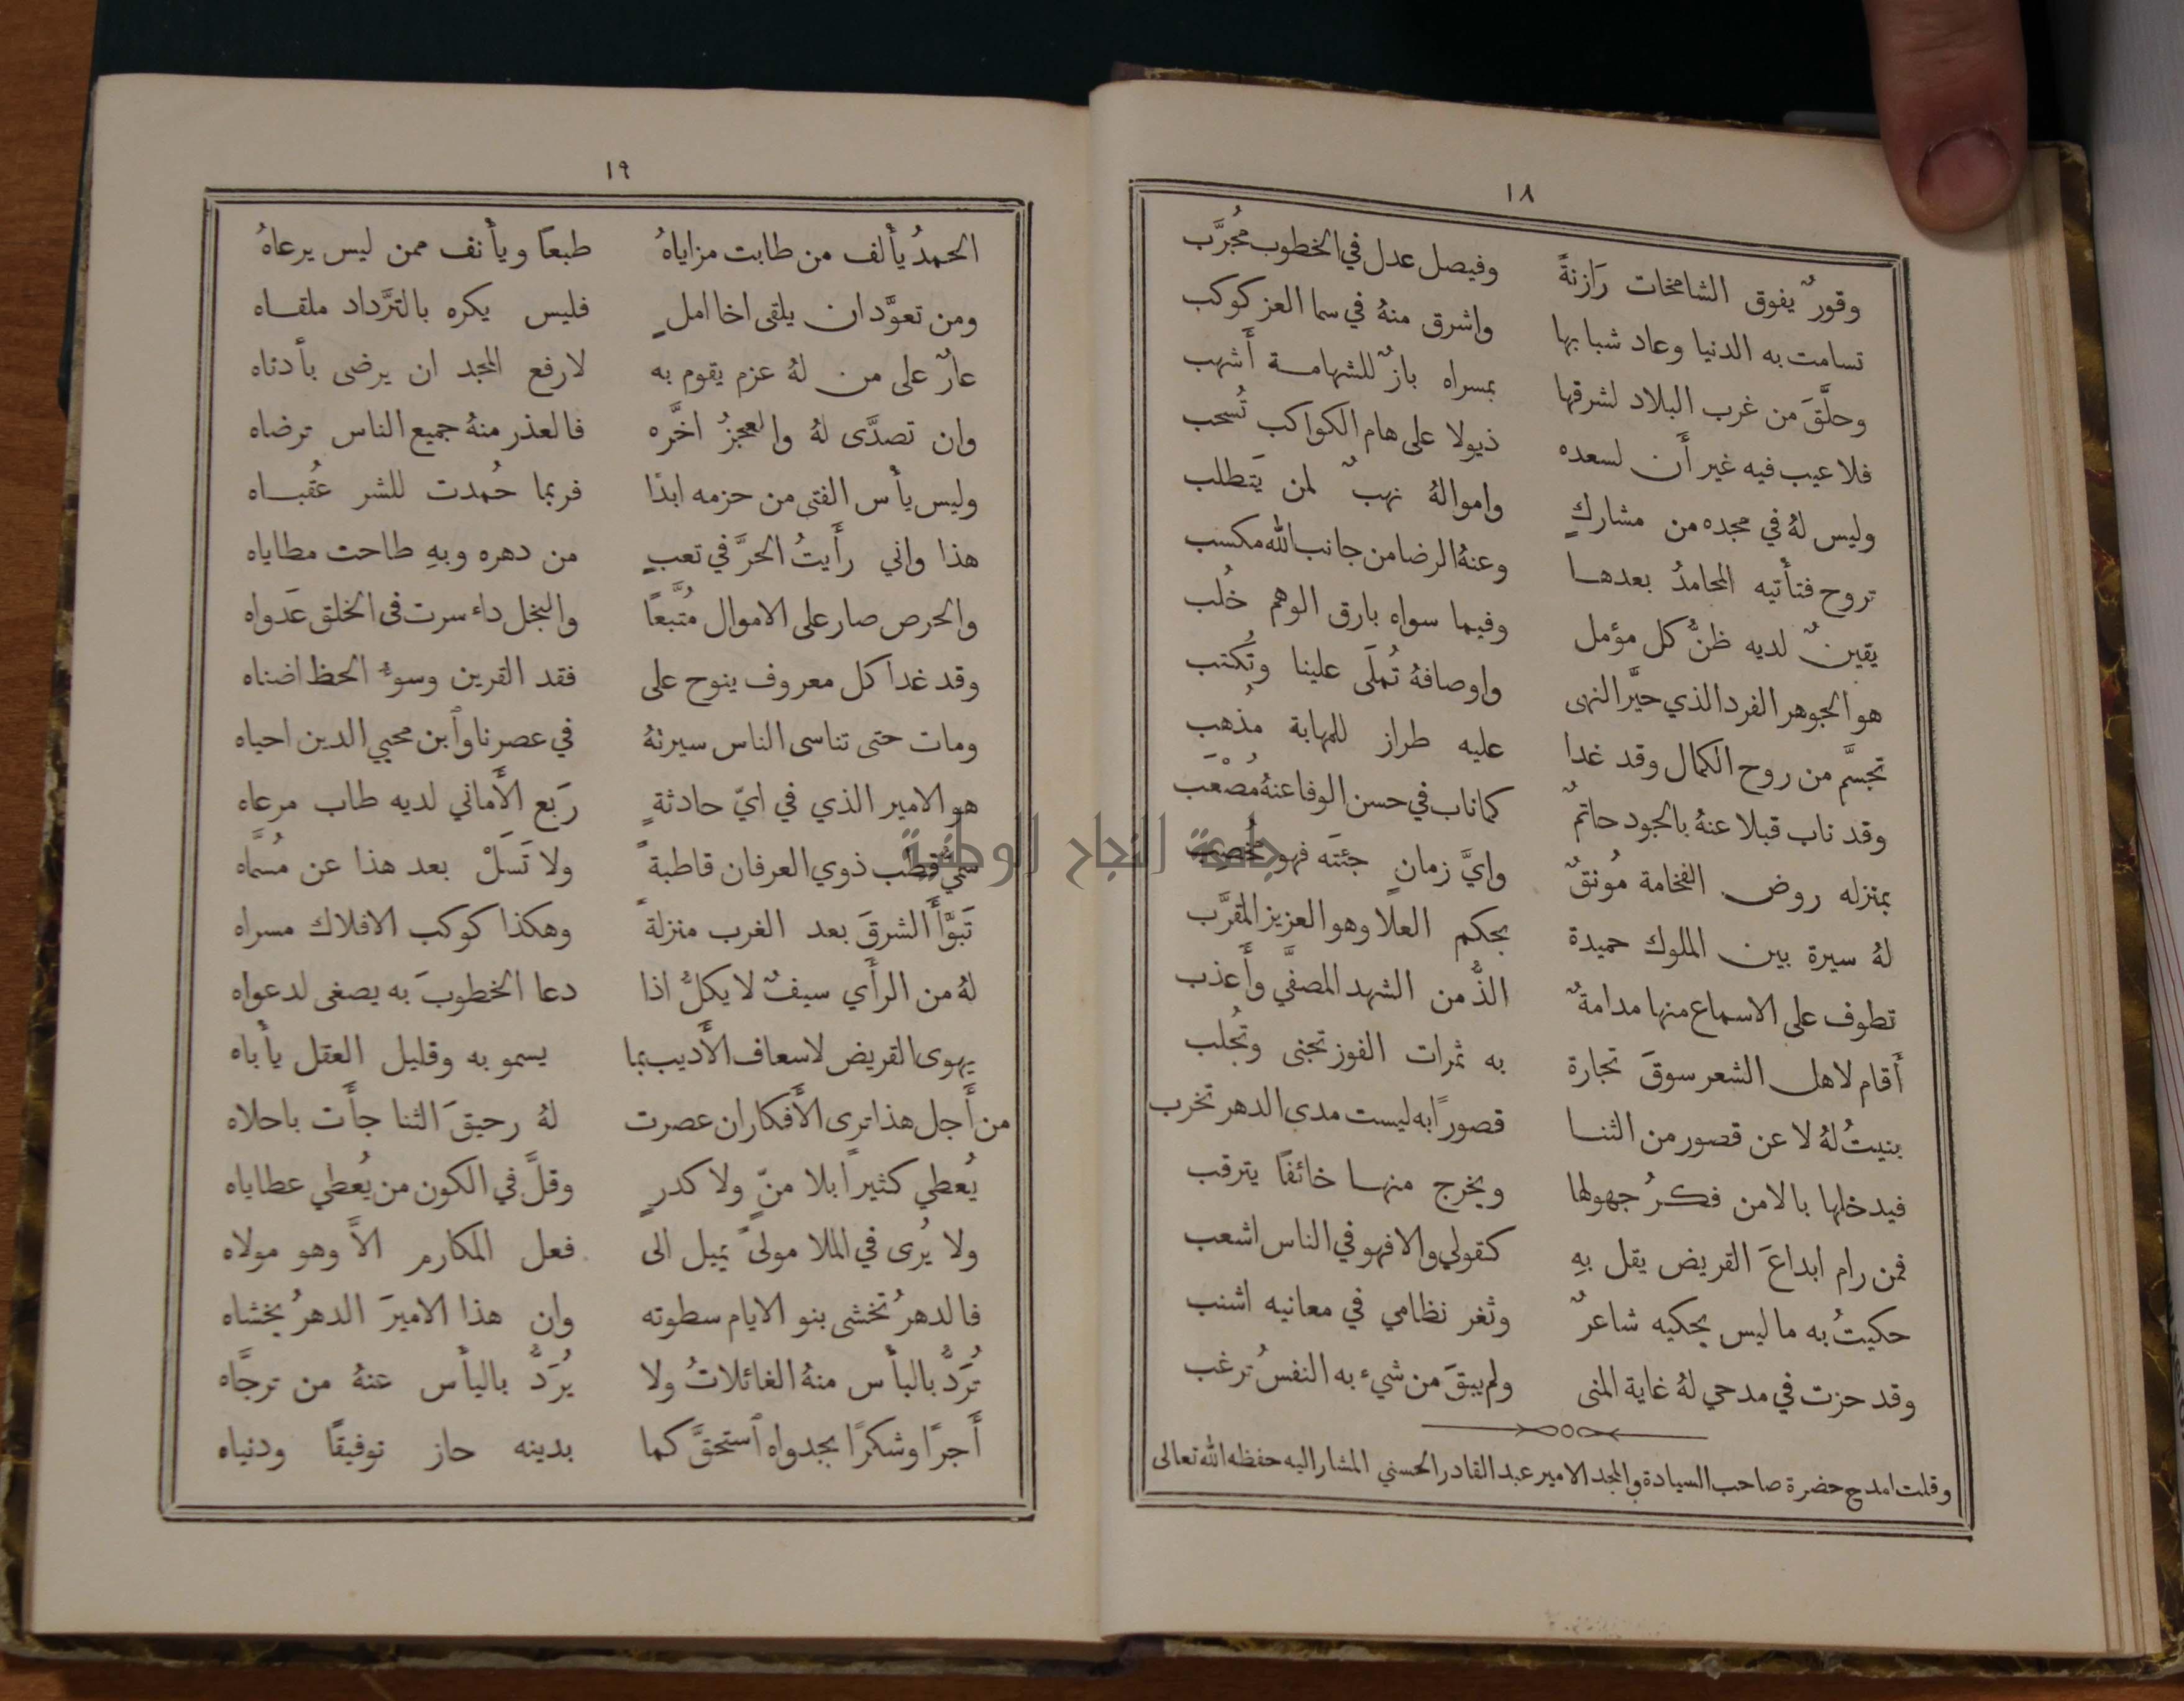 ١٨
وقورٌ يفوق الشامخات رَازنةً وفيصل عدل في الخطوب مُجرَّب
تسامت به الدنيا وعاد شبابها واشرق منهُ في سما العز كوكب
وحلَّقَ من غرب البلاد لشرقها بمسراه بازٌ للشهامة أَشهب
فلا عيب فيه غير أَن لسعده ذيولا على هام الكواكب تُسحب
وليس لهُ في مجده من مشاركٍ واموالهُ نهبٌ لمن يَتطلب
تروح فتأتيه المحامدُ بعدها وعنهُ الرضا من جانب الله مكسب
يقينٌ لديه ظنُّ كل مؤمل وفيما سواه بارق الوهم خُلب
هو الجوهر الفرد الذي حيَّر النهى واوصافهُ تُملَى علينا وتُكتب
تجسَّم من روح الكمال وقد غدا عليه طراز للمهابة مُذهب
وقد ناب قبلا عنهُ بالجود حاتمٌ كما ناب في حسن الوفا عنهُ مُصْعَب
بمنزله روض الفخامة مُونقٌ وايَّ زمانٍ جئتَه فهو مُخصِب
لهُ سيرة بين الملوك حميدة بحكم العلا وهو العزيز المقرَّب
تطوف على الاسماع منها مدامةٌ الذُّ من الشهد المصفَّى وأَعذب
أَقام لاهل الشعر سوقَ تجارة به ثمرات الفوز تجنى وتُجلب
بنيتُ لهُ لا عن قصور من الثنا قصورًا به ليست مدى الدهر تخرب
فيدخلها بالامن فكرُ جهولها ويخرج منها خائفًا يترقب
فمن رام ابداعَ القريض يقل بهِ كقولي والا فهو في الناس اشعب
حكيتُ به ما ليس يحكيه شاعرٌ وثغر نظامي في معانيه اشنب
وقد حزت في مدحي لهُ غاية المنى ولم يبقَ من شيء به النفسُ ترغب
وقلت امدح حضرة صاحب السيادة والمجد الامير عبد القادر الحسني المشار اليه حفظه الله تعالى
١٩
الحمدُ يأْلف من طابت مزاياهُ طبعًا ويأْنف ممن ليس يرعاهُ
ومن تعوَّد ان يلقى اخا املٍ فليس يكره بالتَّرداد ملقاه
عارٌ على من لهُ عزم يقوم به لارفع المجد ان يرضى بأدناه
وان تصدَّى لهُ والعجزُ اخَّره فالعذر منهُ جميع الناس ترضاه
وليس يأْس الفتى من حزمه ابدًا فربما حُمدت للشر عُقباه
هذا واني رأَيتُ الحرَّ في تعبٍ من دهره وبهِ طاحت مطاياه
والحرص صار على الاموال مُتَّبعًا والبخل داء سرت في الخلق عَدواه
وقد غدا كل معروف ينوح على فقد القرين وسوءُ الحظ اضناه
ومات حتى تناسى الناس سيرتهُ في عصرنا وٱبن محيي الدين احياه
هو الامير الذي في ايّ حادثةٍ رَبع الأَماني لديه طاب مرعاه
سَمِيُّ قطب ذوي العرفان قاطبةً ولا تَسَلْ بعد هذا عن مُسمَّاه
تَبَوَّأَ الشرقَ بعد الغرب منزلةً وهكذا كوكب الافلاك مسراه
لهُ من الرأَي سيفٌ لا يكلُّ اذا دعا الخطوبَ به يصغى لدعواه
يهوى القريض لاسعاف الأَديب بما يسمو به وقليل العقل يأْباه
من أَجل هذا ترى الأَفكار ان عصرت لهُ رحيقَ الثنا جأَت باحلاه
يُعطي كثيرًا بلا منّ ولا كدرٍ وقلَّ في الكون من يُعطي عطاياه
ولا يُرى في الملا مولىً يميل الى فعل المكارم الاَّ وهو مولاه
فالدهرُ تخشى بنو الايام سطوته وان هذا الاميرَ الدهرُ يخشاه
تُرَدُّ بالبأْس منهُ الغائلاتُ ولا يُرَدُّ باليأْس عنهُ من ترجَّاه
أَجرًا وشكرًا بجدواه ٱستحقَّ كما بدينه حاز توفيقًا ودنياه
جامعة النجاح الوطنية